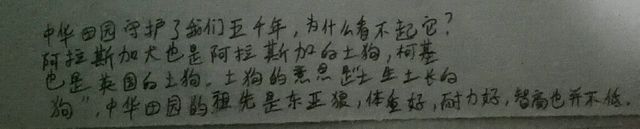 中华田园守护了我们五千年，为什么看不起它？
阿拉斯加犬也是阿拉斯加的土狗，柯基
也是英国的土狗。土狗的意思是“土生土长的
狗”，中华田园的祖先是东亚狼，体质好，耐力好，智商也并不低。